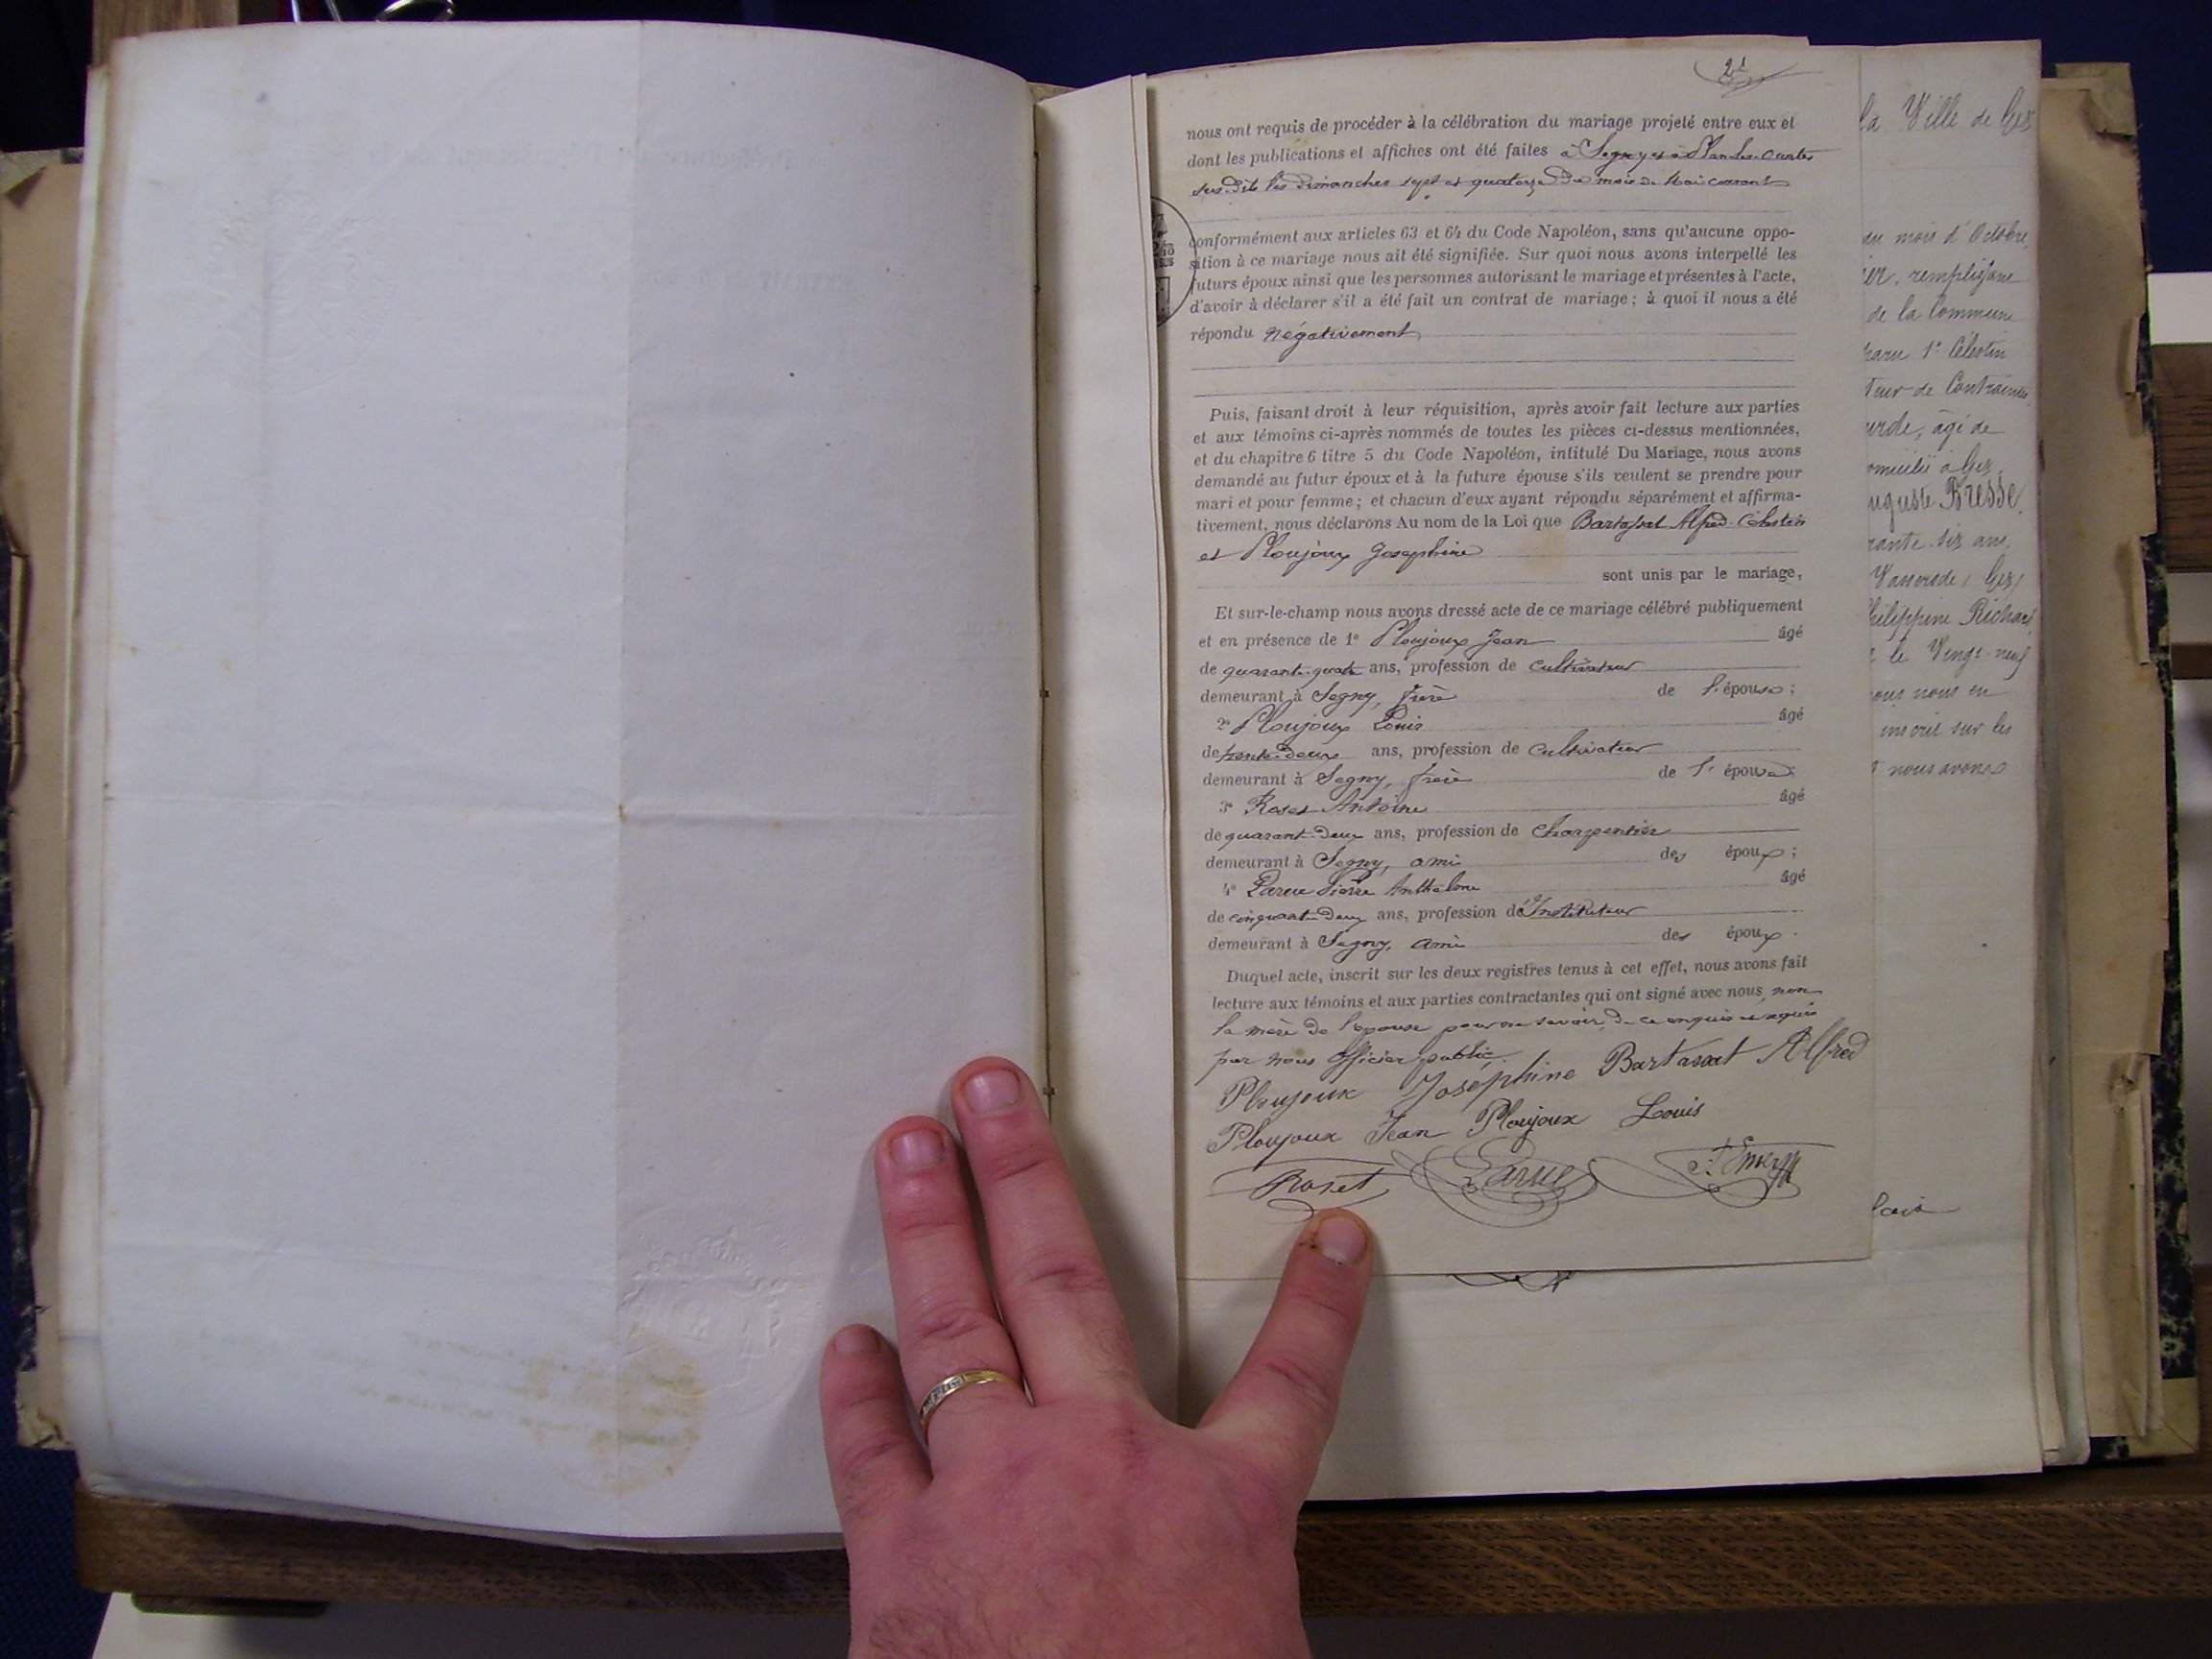 2d
nous ont requis de procéder à la célébration du mariage projeté entre eux et
dont les publications et affiches ont été faites à Segny et à Plan-les-Ouates
sus-dits les dimanches sept et quatorze du mois de Mai courant
conformément aux articles 63 et 64 du Code Napoléon, sans qu'aucune oppo-
sition à ce mariage nous ait été signifiée. Sur quoi nous avons interpellé les
futurs époux ainsi que les personnes autorisant le mariage et présentes à l'acte,
d'avoir à déclarer s'il a été fait un contrat de mariage ; à quoi il nous a été
répondu négativement
Puis, faisant droit à leur réquisition, après avoir fait lecture aux parties
et aux témoins ci-après nommés de toutes les pièces ci-dessus mentionnées,
et du chapitre 6 titre 5 du Code Napoléon, intitulé Du Mariage, nous avons
demandé au futur époux et à la future épouse s'ils veulent se prendre pour
mari et pour femme ; et chacun d'eux ayant répondu séparément et affirma-
tivement, nous déclarons Au nom de la Loi que Bartassat Alfred-Célestin
et Ploujoux Josephine
sont unis par le mariage,
Et sur-le-champ nous avons dressé acte de ce mariage célébré publiquement
et en présence de 1° Ploujoux Jean âgé
de quarante-quatre ans, profession de cultivateur
demeurant à Segny, frère de l'épouse ;
2° Ploujoux Louis âgé
de trente-deux ans, profession de cultivateur
demeurant à Segny, frère de l'épouse ;
3° Roset Antoine âgé
de quarante-deux ans, profession de charpentier
demeurant à Segny, ami des époux ;
4° Larue Pierre Anthelme âgé
de cinquante-deux ans, profession d'Instituteur
demeurant à Segny, ami des époux.
Duquel acte, inscrit sur les deux registres tenus à cet effet, nous avons fait
lecture aux témoins et aux parties contractantes qui ont signé avec nous, non
la mère de l'épouse pour ne savoir de ce enquis et requis
par nous officier public,
Ploujoux Joséphine Bartassat Alfred
Ploujoux Jean Ploujoux Louis
Roset Larue
la Ville de Gex
du mois d'Octobre
remplissant
de la Commune
1° Célestin
teur de Contraintes
âgé de
à Gex
uguste Bresse,
rante-six ans,
Vasserode, Gex,
hilippine Richard
le Vingt-neuf
nous en
inscrit sur les
nous avons